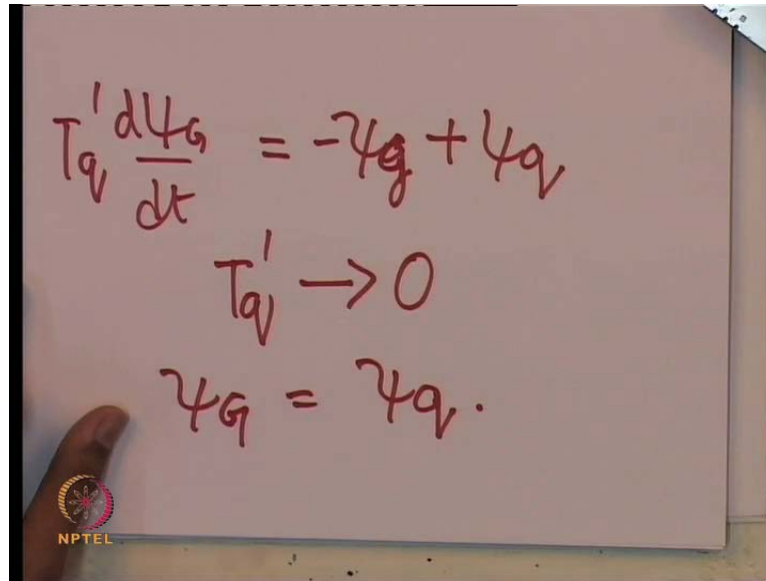 Tq' dψG/dt = -ψg + ψq
Tq' → 0
ψG = ψq.
NPTEL